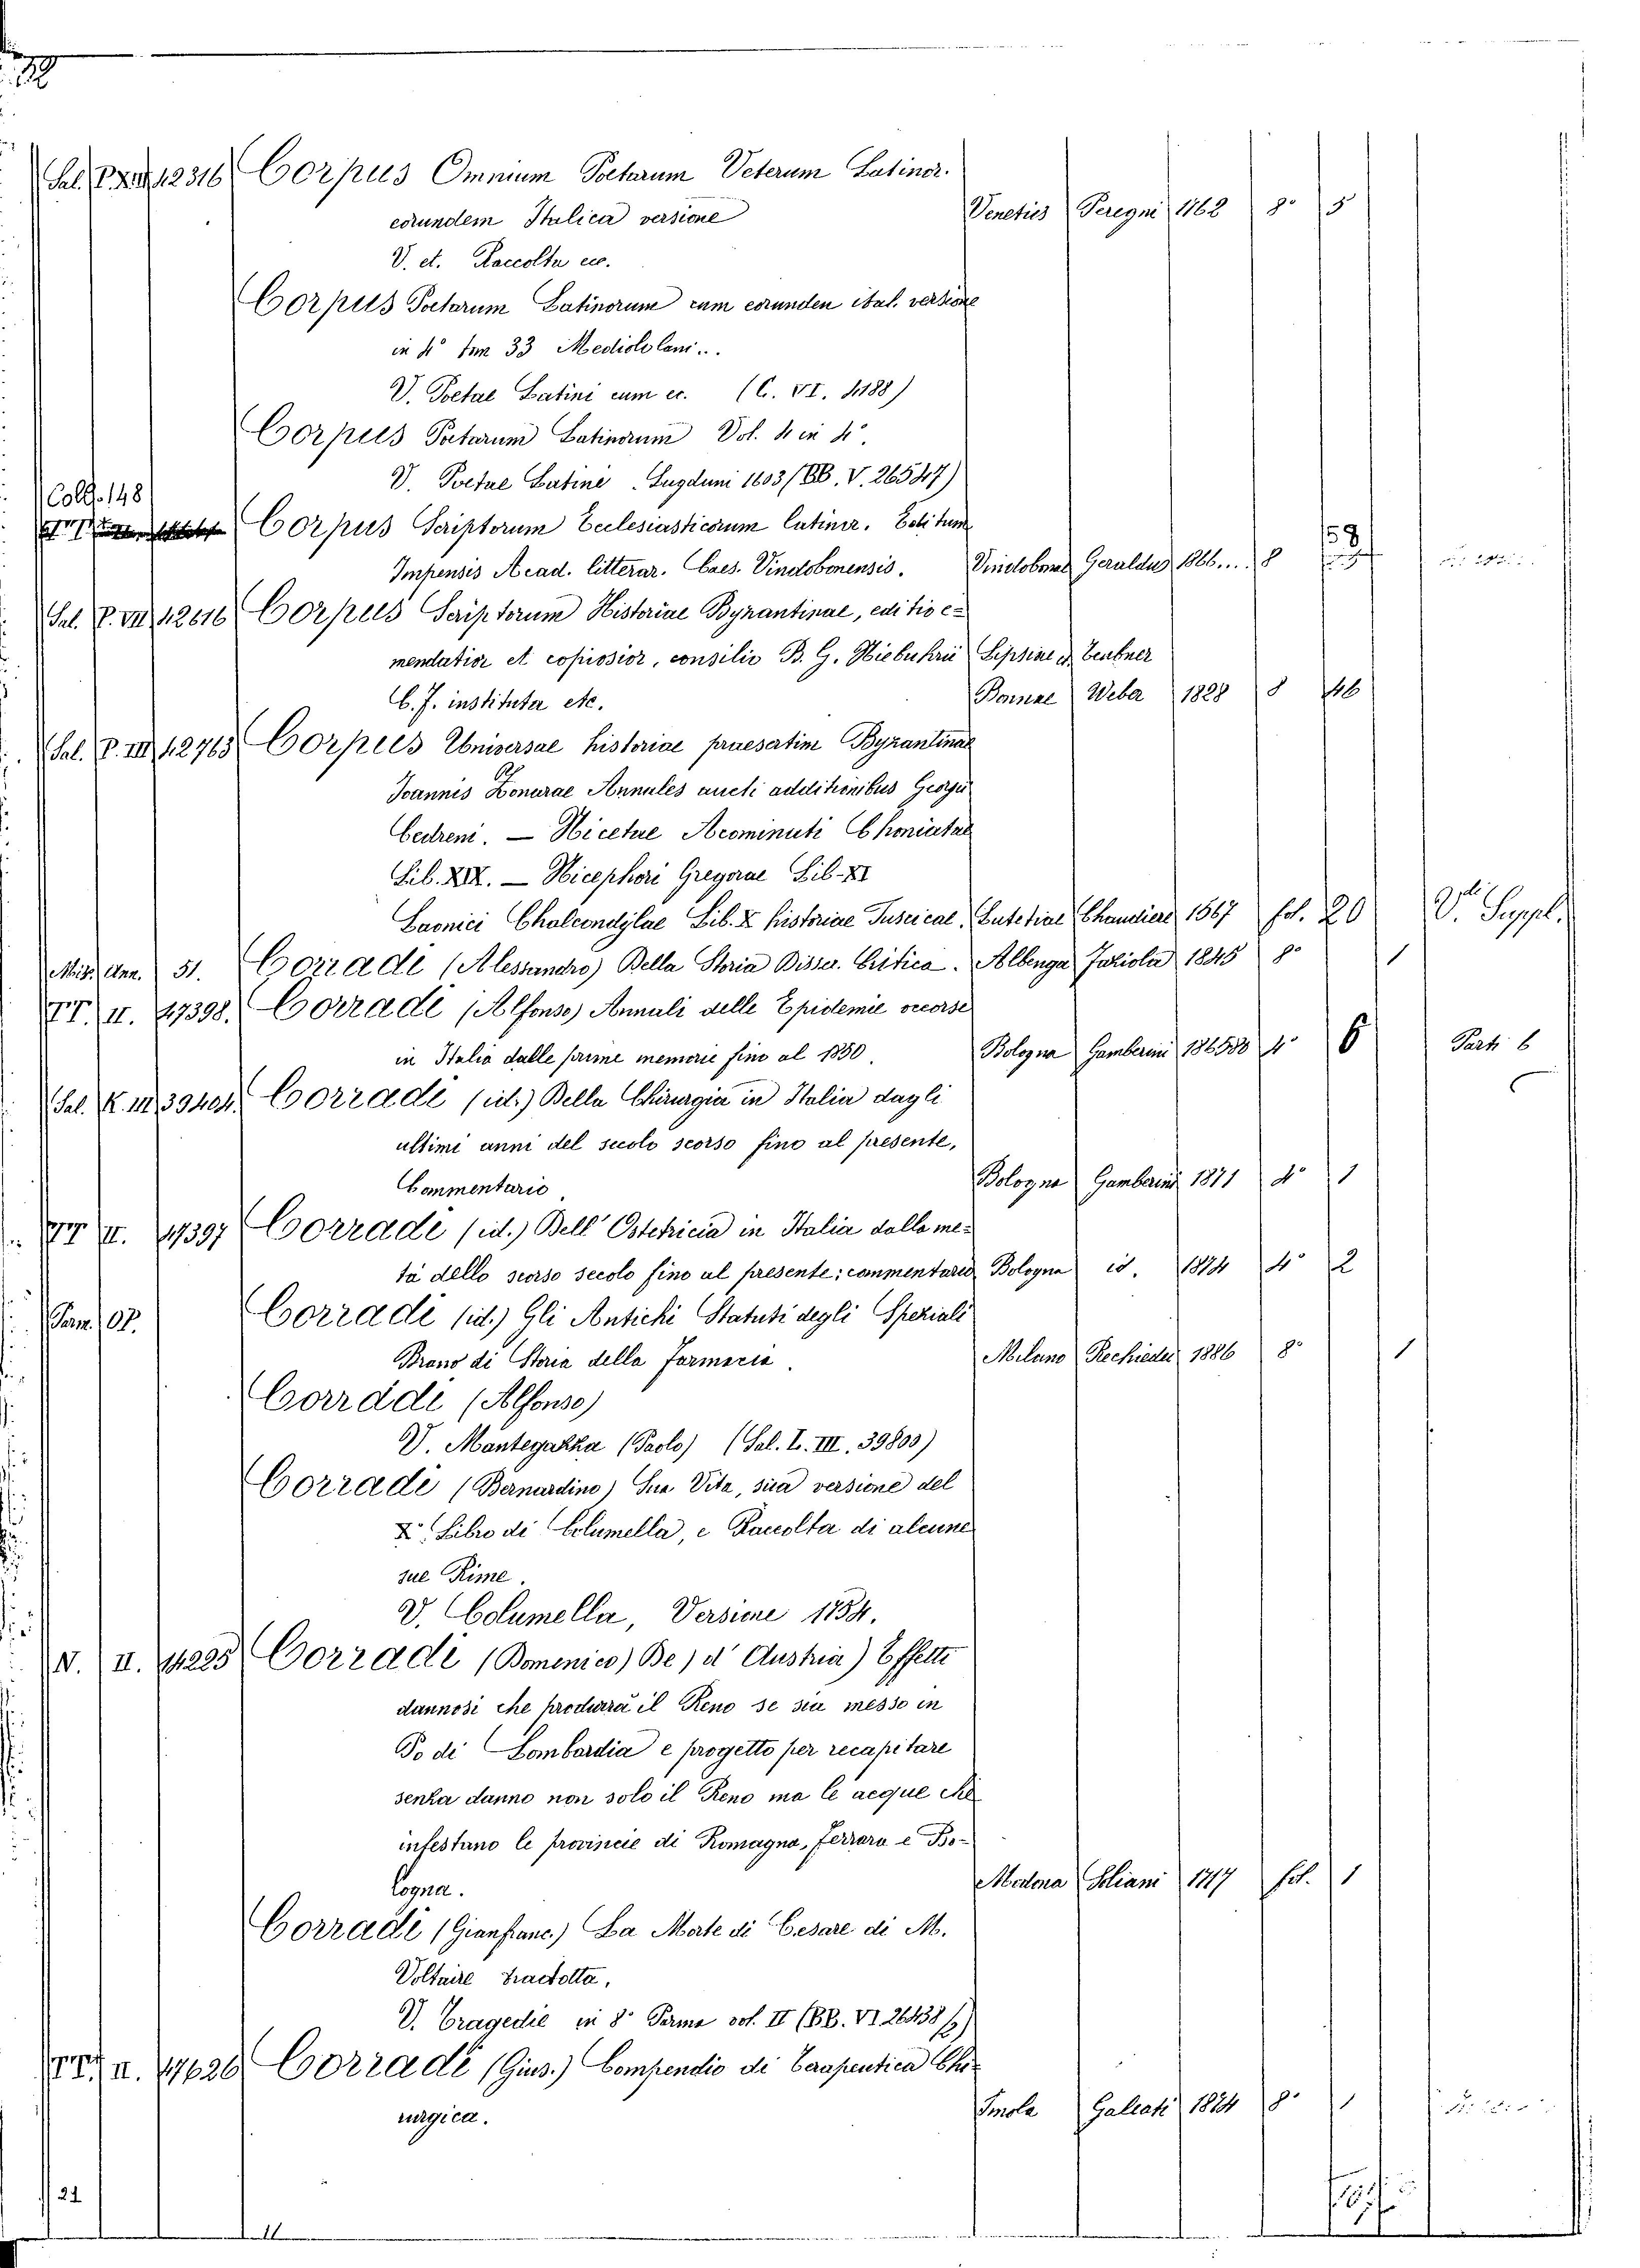 Sal. P. XII 42316 Corpus Omnium Poetarum Veterum Latinor.
eorundem Italica versione Venetiis Peregni 1768 8° 5
V. et. Raccolta ec.
Corpus Poetarum Latinorum cum eorunden ital. versione
in 4° tom 33 Mediolilani...
V. Poetae Latini cum ec. (C. VI. 4188)
Corpus Poetarum Latinorum Vol. 4 in 4°.
V. Poetae Latine Lugduni 1603 (BB. V. 26547)
Coll. 148
Corpus Scriptorum Ecclesiasticorum latinor. Editum
Impensis Acad. litterar. Caes. Vindobonensis. Vindobonae Geraldus 1866.... 8 58
Sal. P. VII 42616 Corpus Scriptorum Historiae Byzantinae, editio e=
mendatior et copiosior, consilio B. G. Niebuhrii Lipsiae Teubner
C. F. instituta etc. Bonnae Weber 1828 8 46
Sal. P. III 42763 Corpus Universae historiae praesertim Byzantinae
Joannis Zonarae Annales aucti additionibus Georgii
Cedreni. — Nicetae Acominati Choniatae
Lib. XIX. — Nicephori Gregorae Lib. XI
Laonici Chalcondylae Lib. X historiae Tuscicae. Lutetiae Chaudiere 1567 fol. 20 V. Suppl.
Mis. Ann. 51. Corradi (Alessandro) Della Storia Disser. Critica. Albenga Joziola 1845 8° 1
TT. II. 47398. Corradi (Alfonso) Annali delle Epidemie occorse
in Italia dalle prime memorie fino al 1850. Bologna Gamberini 186580 4° 6 Parti 6
Sal. K. III 39404. Corradi (id.) Della Chirurgia in Italia dagli
ultimi anni del secolo scorso fino al presente,
Commentario Bologna Gamberini 1871 4° 1
TT II. 47397 Corradi (id.) Dell' Ostetricia in Italia dalla me=
tà dello scorso secolo fino al presente; commentario Bologna id. 1874 4° 2
Farm. 07. Corradi (id.) Gli Antichi Statuti degli Speziali
Brano di Storia della Farmacia. Milano Rechiedei 1886 8° 1
Corradi (Alfonso)
V. Mantegazza (Paolo) (Sal. L. III. 39803)
Corradi (Bernardino) Sua Vita, sua versione del
X° Libro di Columella, e Raccolta di alcune
sue Rime.
V. Columella, Versione 1754.
V. II. 14225 Corradi (Domenico) De) d' Austria) Effetti
dannosi che produrrà il Reno se sia messo in
Po di Lombardia e progetto per recapitare
senza danno non solo il Reno ma le acque che
infestano le provincie di Romagna, Ferrara e Bo=
logna. Modena Soliani 1717 fol. 1
Corradi (Gianfranc.) La Morte di Cesare di M.
Voltaire tradotta.
V. Tragedie in 8° Parma vol. II (BB. VI 26438)
TT. II. 47626 Corradi (Gius.) Compendio di Terapeutica Chi=
rurgica. Imola Galeati 1874 8° 1
21
11